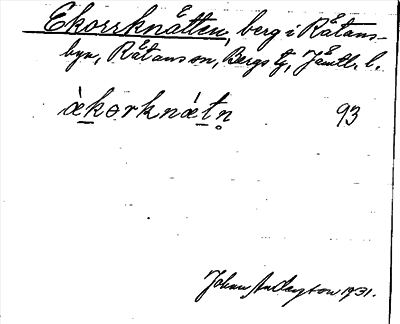 Ekorrknåtten, berg i Råtans-
byn, Råtans sn, Bergs tg, Jämtl. l.
æ̀korknǽtn̥ 93
Johan Andersson 1931.